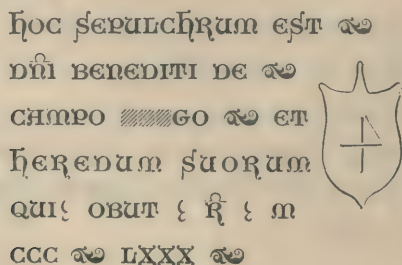 hoc sepulchrum est
dñi benediti de
campo go et
heredum suorum
qui obut R̃ m
ccc lxxx